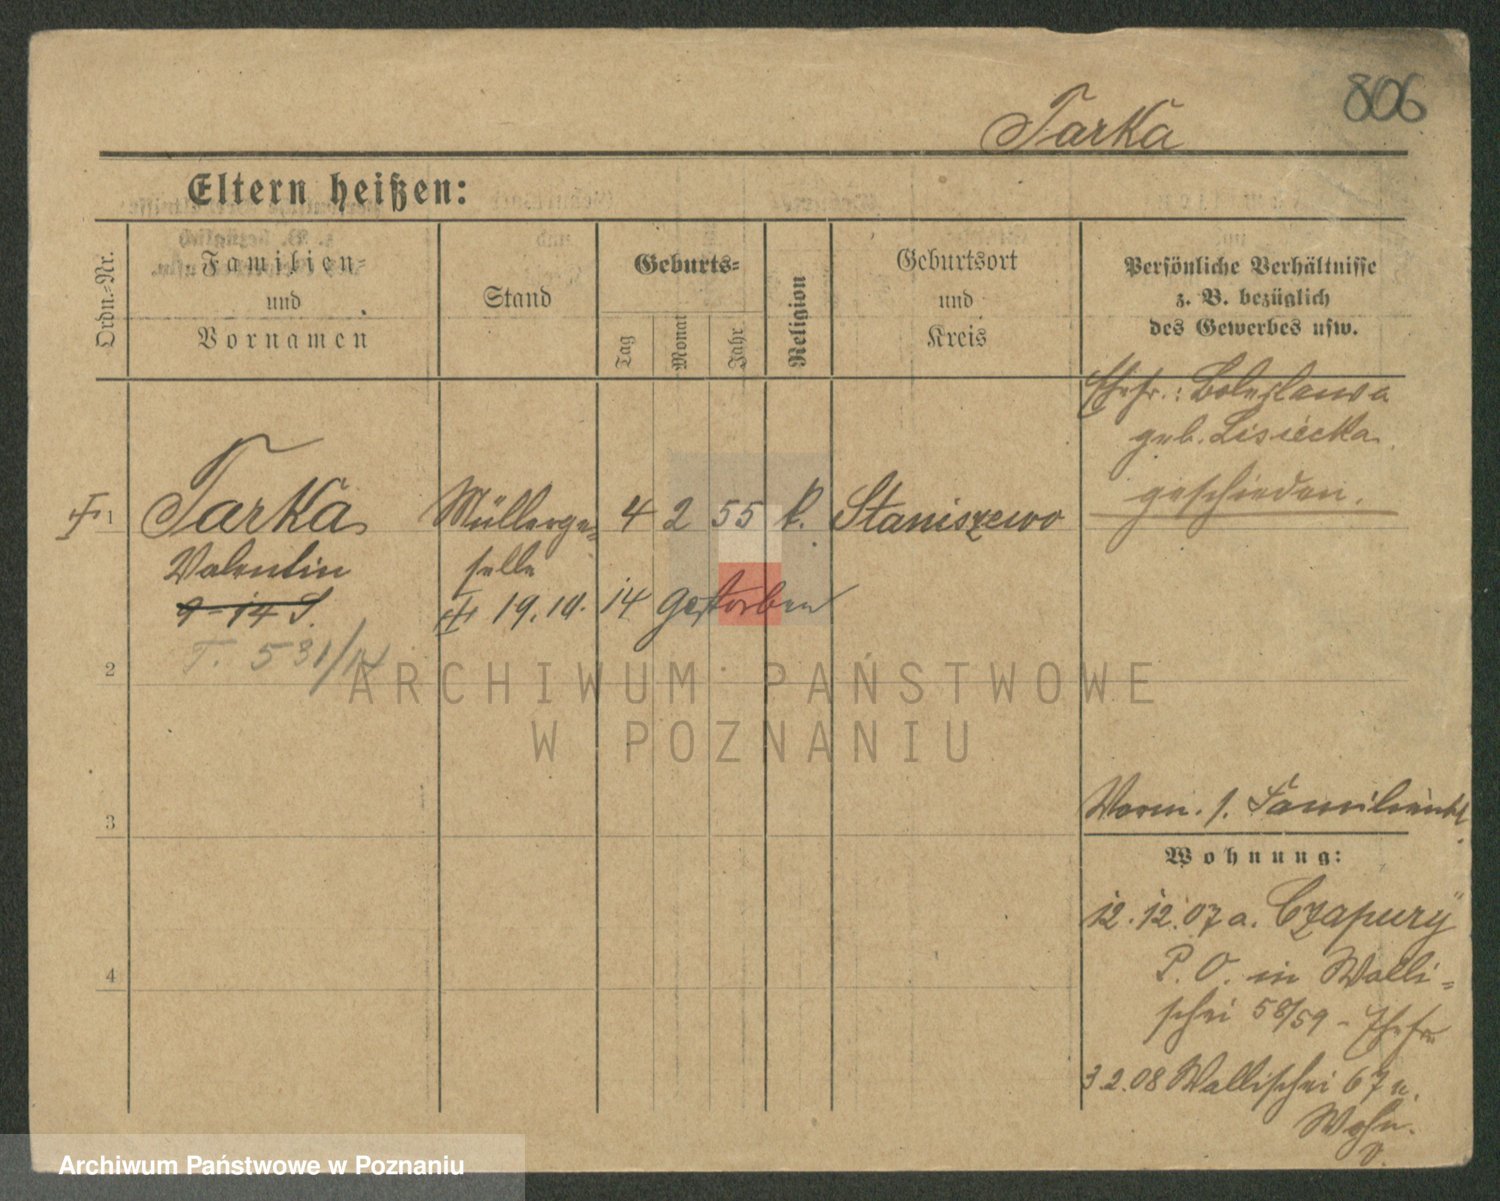 806
Tarka
Eltern heißen:
Ordn.-Nr.
Familien-
und
Vornamen
Stand
Geburts-
Tag
Monat
Jahr
Religion
Geburtsort
und
Kreis
Persönliche Verhältnisse
z. B. bezüglich
des Gewerbes usw.
Ehefr.: Boleslawa
geb. Lisiecka
geschieden.
1 Tarka Müllerge- 4 2 55 k. Staniszewo
Valentin selle
9-14 S. 19.10. 14 gestorben
T. 531/14
2
ARCHIWUM PAŃSTWOWE
W POZNANIU
3
Verm. s. Familienbl.
Wohnung:
12.12.07 a. Czapury
P. O. in Walli-
schei 58/59 - Ehefr.
4
3.2.08 Wallischei 67 a.
Wohn.
Archiwum Państwowe w Poznaniu